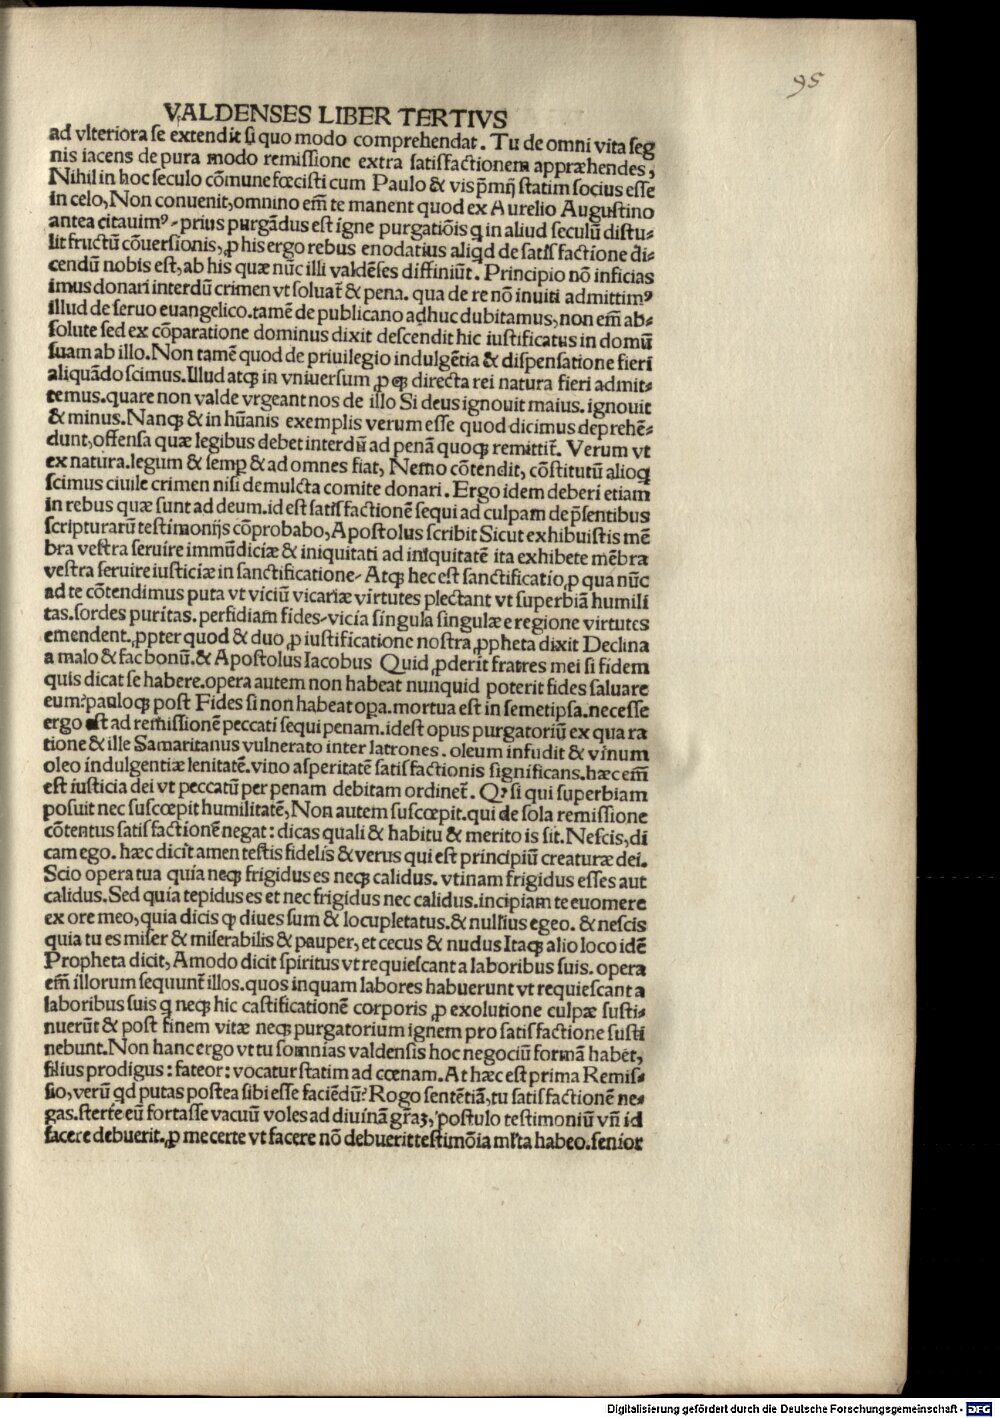 95
VALDENSES LIBER TERTIVS
ad vlteriora se extendit si quo modo comprehendat. Tu de omni vita seg
nis iacens de pura modo remissione extra satisfactionem appræhendes,
Nihil in hoc seculo cõmune fœcisti cum Paulo & vis p̃mij statim socius esse
in celo, Non conuenit, omnino em̃ te manent quod ex Aurelio Augustino
antea citauimꝰ- prius purgãdus est igne purgatiõis q in aliud seculũ distu-
lit fructũ cõuersionis, ꝓ his ergo rebus enodatius aliqd de satisfactione di-
cendũ nobis est, ab his quæ nũc illi valdẽses diffiniũt. Principio nõ inficias
imus donari interdũ crimen vt soluat̃ & pena. qua de re nõ inuiti admittimꝰ
illud de seruo euangelico. tamẽ de publicano adhuc dubitamus, non em̃ ab-
solute sed ex cõparatione dominus dixit descendit hic iustificatus in domũ
suam ab illo. Non tamẽ quod de priuilegio indulgẽtia & dispensatione fieri
aliquãdo scimus. Illud atqꝫ in vniuersum ꝓ qꝫ directa rei natura fieri admit-
temus. quare non valde vrgeant nos de illo Si deus ignouit maius. ignouit
& minus. Nanqꝫ & in hũanis exemplis verum esse quod dicimus deprehẽ-
dunt, offensa quæ legibus debet interdũ ad penã quoqꝫ remittit̃. Verum vt
ex natura. legum & semꝑ & ad omnes fiat, Nemo cõtendit, cõstitutũ alioq
scimus ciuile crimen nisi demulcta comite donari. Ergo idem deberi etiam
in rebus quæ sunt ad deum. id est satisfactionẽ sequi ad culpam de p̃sentibus
scripturarũ testimonijs cõprobabo, Apostolus scribit Sicut exhibuistis mẽ
bra vestra seruire immũdiciæ & iniquitati ad iniquitatẽ ita exhibete mẽbra
vestra seruire iusticiæ in sanctificatione- Atqꝫ hec est sanctificatio, ꝓ qua nũc
ad te cõtendimus puta vt viciũ vicariæ virtutes plectant vt superbiã humili
tas. sordes puritas. perfidiam fides- vicia singula singulæ e regione virtutes
emendent. ꝓpter quod & duo ꝓ iustificatione nostra ꝓpheta dixit Declina
a malo & fac bonũ. & Apostolus Iacobus Quid ꝓderit fratres mei si fidem
quis dicat se habere. opera autem non habeat nunquid poterit fides saluare
eum? pauloqꝫ post Fides si non habeat oꝑa. mortua est in semetipsa. necesse
ergo est ad remissionẽ peccati sequi penam. idest opus purgatoriũ ex qua ra
tione & ille Samaritanus vulnerato inter latrones. oleum infudit & vinum
oleo indulgentiæ lenitatẽ. vino asperitatẽ satisfactionis significans. hæc em̃
est iusticia dei vt peccatũ per penam debitam ordinet̃. Qꝫ si qui superbiam
posuit nec suscœpit humilitatẽ, Non autem suscœpit. qui de sola remissione
cõtentus satisfactionẽ negat: dicas quali & habitu & merito is sit. Nescis, di
cam ego. hæc dicit amen testis fidelis & verus qui est principiũ creaturæ dei.
Scio opera tua quia neqꝫ frigidus es neqꝫ calidus. vtinam frigidus esses aut
calidus. Sed quia tepidus es et nec frigidus nec calidus. incipiam te euomere
ex ore meo, quia dicis ꝙ diues sum & locupletatus. & nullius egeo. & nescis
quia tu es miser & miserabilis & pauper, et cecus & nudus Itaqꝫ alio loco idẽ
Propheta dicit, Amodo dicit spiritus vt requiescant a laboribus suis. opera
em̃ illorum sequunt̃ illos. quos inquam labores habuerunt vt requiescant a
laboribus suis q neqꝫ hic castificationẽ corporis ꝓ exolutione culpæ susti-
nuerũt & post finem vitæ neqꝫ purgatorium ignem pro satisfactione susti
nebunt. Non hanc ergo vt tu somnias valdensis hoc negociũ formã habet,
filius prodigus: fateor: vocatur statim ad cœnam. At hæc est prima Remis-
sio, verũ qd putas postea sibi esse faciẽdũ? Rogo sentẽtiã, tu satisfactionẽ ne-
gas. sterte eũ fortasse vacuũ voles ad diuinã gr̃aꝫ, postulo testimoniũ vñ id
facere debuerit. ꝓ me certe vt facere nõ debuerit testimõia ml̃ta habeo. senior
Digitalisierung gefördert durch die Deutsche Forschungsgemeinschaft - DFG